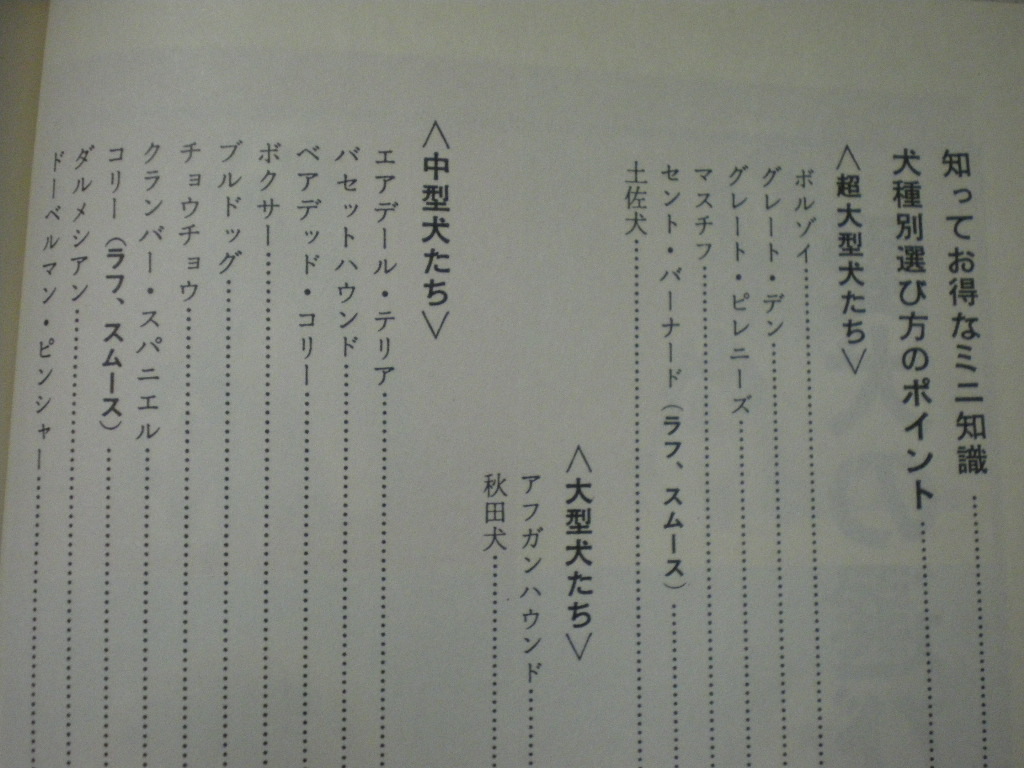 知ってお得なミニ知識
犬種別選び方のポイント
〈超大型犬たち〉
ボルゾイ
グレート・デン
グレート・ピレニーズ
マスチフ
セント・バーナード（ラフ、スムース）
土佐犬
〈大型犬たち〉
アフガンハウンド
秋田犬
〈中型犬たち〉
エアデール・テリア
バセットハウンド
ベアデッド・コリー
ボクサー
ブルドッグ
チョウチョウ
クランバー・スパニエル
コリー（ラフ、スムース）
ダルメシアン
ドーベルマン・ピンシャー